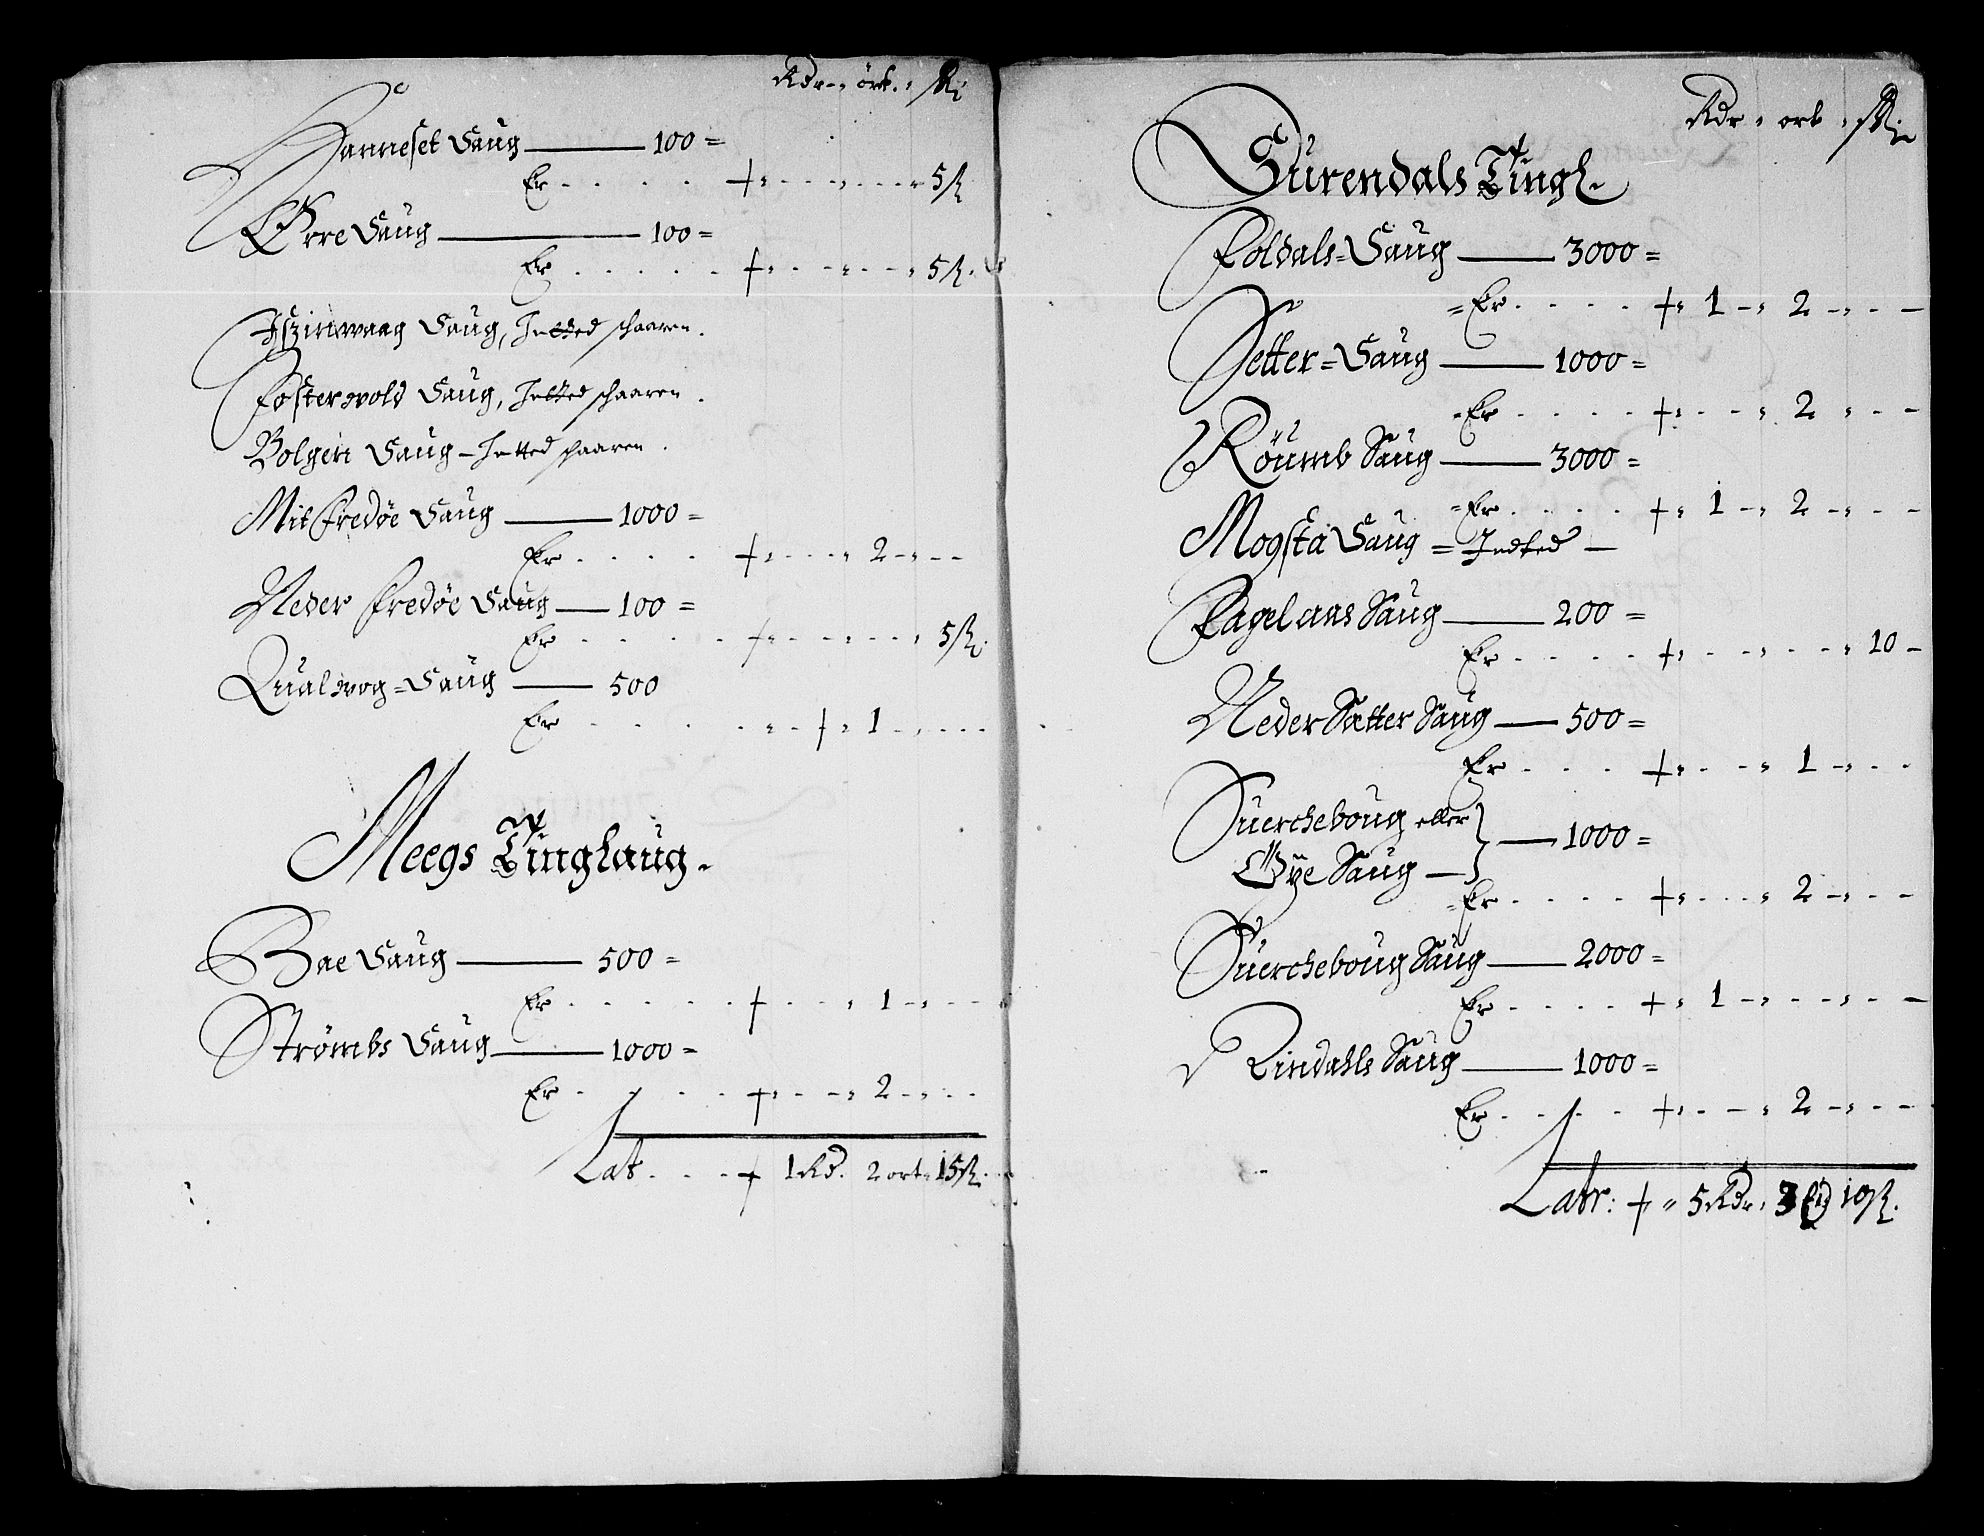 Rdr – ört. – ſk:
Hanneset Saug — 100 =
Er . . . . + . . . 5 ſk
Ørre Saug — 100 =
Er . . . . . + . . . 5 ſk.
Saug, Inted schaaren.
Fosterwold Saug, Inted schaaren.
Bolgen Saug – Inted schaaren.
Mit Fredøe Saug — 1000 =
Er . . . . + . . . 2 – . –
Neder Fredøe Saug — 100 =
Er . . . . + . . . 5 ſk.
Qualwog = Saug — 500
Er . . . . . + . 1 . . . .
Meegs Tinglaug.
Bae Saug — 500 =
Er . . . . . + . . . 1 – . –
Strømbs Saug — 1000 =
Er . . . . + . . – . 2 – . . .
Lat . . . + 1 Rd. 2 ort. 15 ſk.
Rdr . ort . ſk:
Surendals Tingl.
Foldals = Saug — 3000 =
= Er . . . . + . 1 – . 2 – . . –
Setter = Saug — 1000 =
= Er . . . . + . . – . 2 . . –
Röumb Saug — 3000 =
= Er . . . . + . 1 – . 2 – . . –
Mogsta Saug = Indted –
Fagelaas Saug — 200 =
Er . . . . + . . . . . 10 –
Neder Sætter Saug — 500 =
Er . . . . + . . – . 1 – . . .
Suercheboug eller
Øÿe Saug – } — 1000 =
= Er . . . . + . . . . 2 – . . –
Suercheboug Saug — 2000 =
Er . . . . + . 1 – . . – . . –
Rindahls Saug — 1000 =
Er . . . . + . . – . 2 – . . –
Latr: + . 5 Rdr. 3 10 ſk.